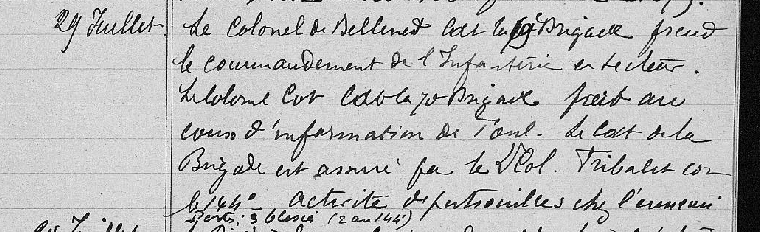 29 Juillet. Le Colonel de Bellenet Cdt la 69e Brigade prend
le commandement de l'Infanterie en secteur.
Le Colonel Cot Cdt la 70 Brigade part au
cours d'information de Toul. Le Cdt de la
Brigade est assuré par le Lt Col. Tribalet Cdt
le 144e Activité de patrouilles chez l'ennemi
Pertes: 3 blessés (2 au 144)